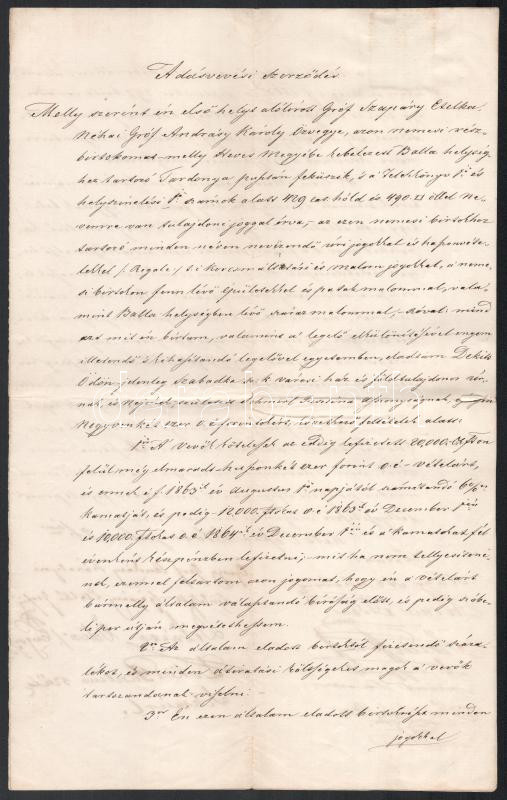 Adásvevési szerződés
Melly szerént én első helyt alólírott Gróf Szapáry Etelka
Néhai Gróf Andrásy Károly özvegye, azon nemesi rész-
birtokomat melly Heves Megyébe kebelezett Balla helység
hez tartozó Tardonya pusztán fekszik, s a Telekkönyv
helyszinelési szamok alatt 429 cat. hold és 490 □ öllel ne-
vemre van tulajdoni joggal írva, az ezen nemesi birtokhoz
tartozó minden néven nevezendő úri jogokkal és haszonvéte-
lekkel /: Regale :/ s i korcsmáltatási és malom jogokkal, a neme-
si birtokon fenn lévő épületekkel és patak malommal, vala-
mint Balla helységben lévő száraz malommal, szóval: mind
azt mit én bírtam, valamint a legelő elkülönítésével engem
illetendő s kihasítandó legelővel egyetemben, eladtam
Ödön jelenleg szabadka város ház és földtulajdonos úr-
nak, és Nejének született asszonyságnak
Negyvenkét ezer o. é. forintokért, következő feltételek alatt:
1ör A' Vevők kötelesek az eddig lefizetett 20,000 fton
felül még elmaradt huszonkét ezer forint o. é. vételárt,
és ennek é. f. 1863 év Augustus 1ső napjától számítandó 6%
kamatját, és pedig 12,000 ftot o. é. 1863 év December 1én
és 10,000 ftot o. é. 1864 év December 1én és a kamatokat fél
évenként készpénzben lefizetni; mit ha nem tellyesítené-
nek, ezennel feltartom azon jogomat, hogy én a vételárt
bármelly általam választandó bíróság előtt, és pedig szóbe-
li per útján megvétethessem.
2or Az általam eladott birtoktól fizetendő száza-
lékot, és minden átíratási költségeket magok a vevők
tartozandanak viselni.
3or Én ezen általam eladott birtokrészt minden
jogokkal